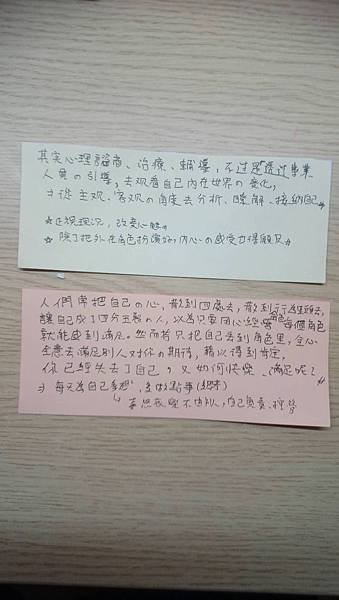 其实心理諮商、治療、輔導，不过是透过專業
人員の引導，去观看自己內在世界の变化，
→從主观、客观の角度去分析、瞭解、接纳自己。
☆正視現況，改变心態。
☆除了把外在角色扮演好，内心の感受力得顧及。
人們常把自己の心，散到四處去，散到行為裡頭去，
讓自己成了四分五裂の人，以為只要用心經營每個角色
就能感到滿足。然而若只把自己丟到角色里，全心
全意去滿足別人对你の期待，藉以得到肯定，
你已經失去了自己，又如何快樂、滿足呢？
→每天為自己多想，多做點事
喜怒哀樂不由別人，自己負責、掌控